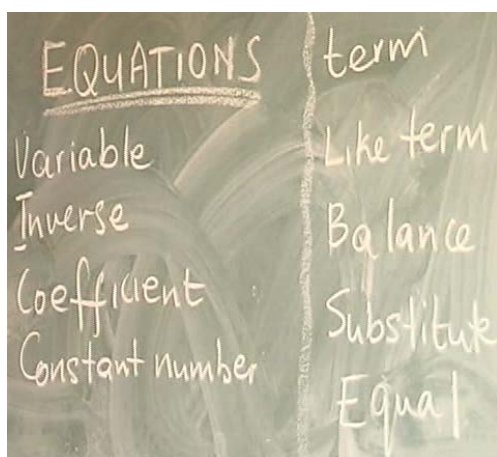 EQUATIONS
Variable
Inverse
Coefficient
Constant number
term
Like term
Balance
Substitute
Equal